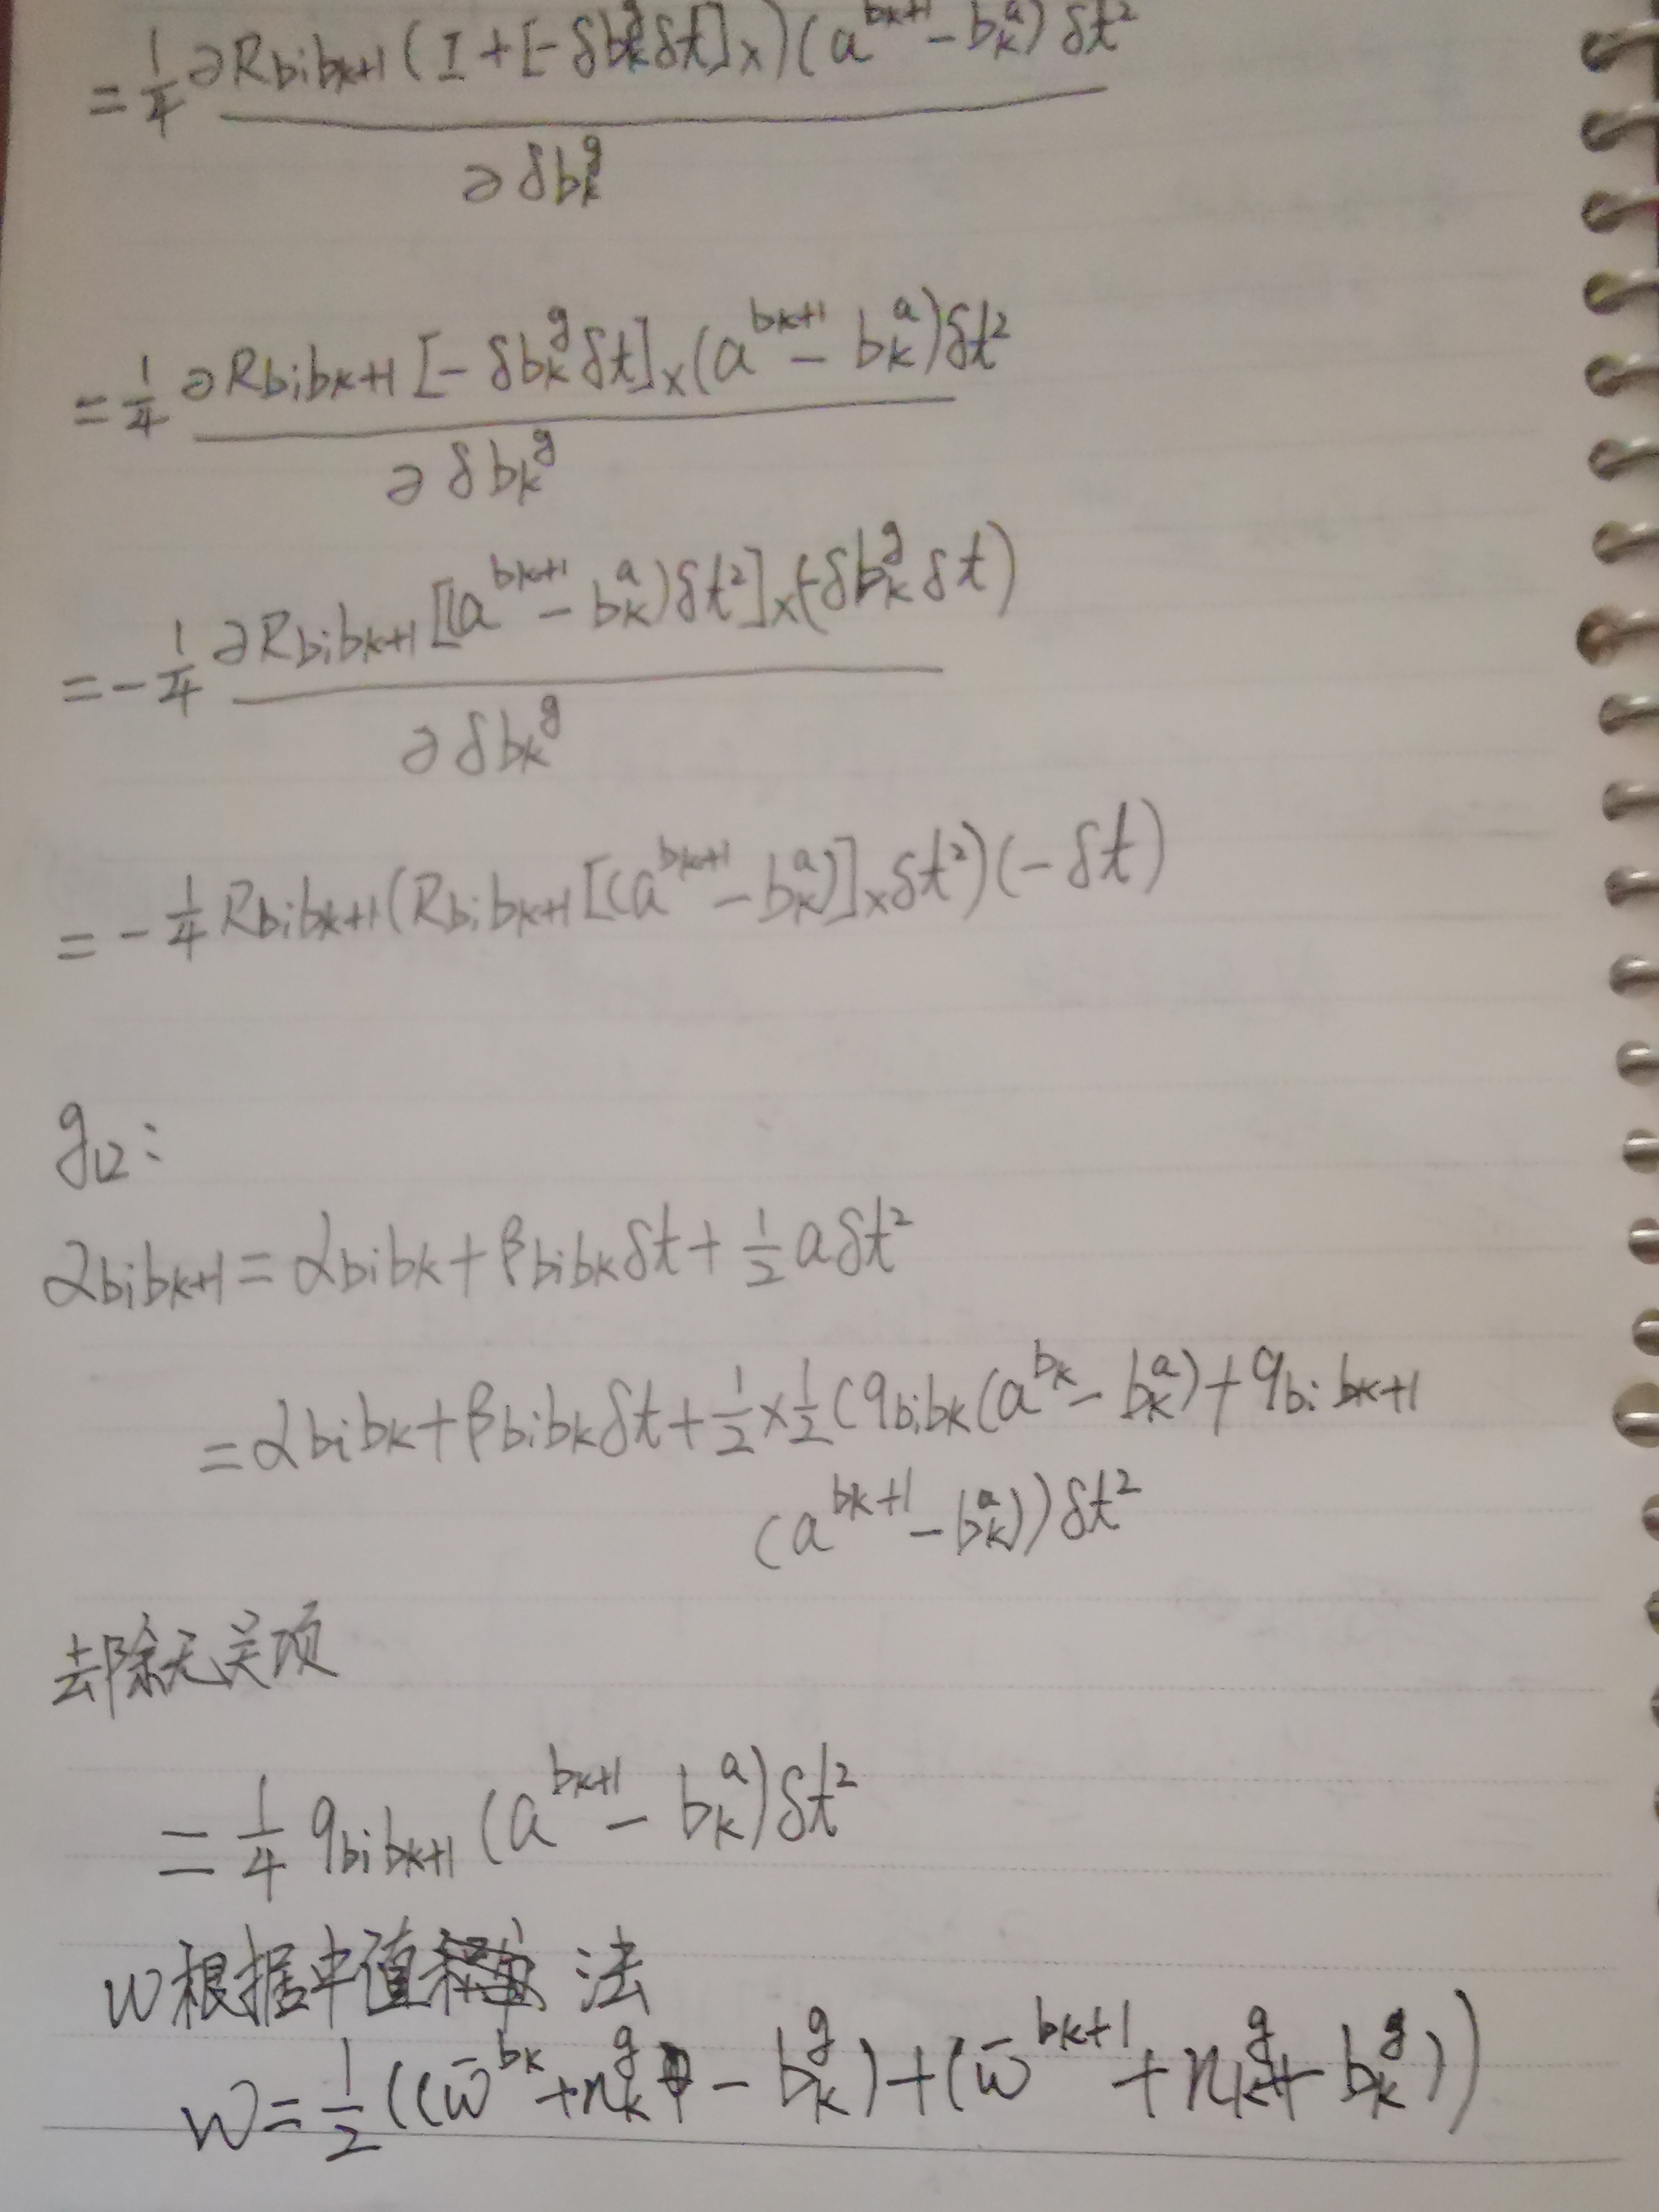 = 1/4 ∂R_{bibk+1}(I+[-δb_k^g δt]_×)(a^{bk+1} - b_k^a)δt²
∂δb_k^g
= 1/4 ∂R_{bibk+1}[-δb_k^g δt]_×(a^{bk+1} - b_k^a)δt²
∂δb_k^g
= -1/4 ∂R_{bibk+1}[(a^{bk+1} - b_k^a)δt²]_×(-δb_k^g δt)
∂δb_k^g
= -1/4 R_{bibk+1}(R_{bibk+1}[(a^{bk+1} - b_k^a)]_×δt²)(-δt)
g_{12}:
α_{bibk+1} = α_{bibk} + β_{bibk}δt + 1/2 aδt²
= α_{bibk} + β_{bibk}δt + 1/2 × 1/2 (q_{bibk}(a^{bk} - b_k^a) + q_{bibk+1}
(a^{bk+1} - b_k^a))δt²
去除无关项
= 1/4 q_{bibk+1}(a^{bk+1} - b_k^a)δt²
w根据中值 法
w = 1/2((w̄^{bk} + n_k^g - b_k^g) + (w̄^{bk+1} + n_{k+1}^g - b_k^g))